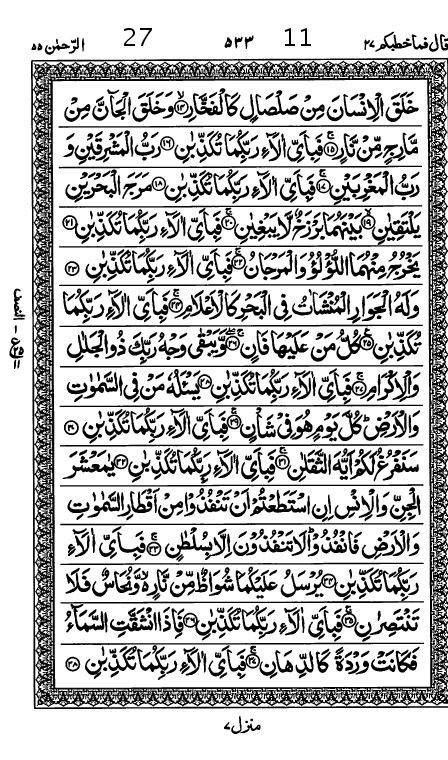 قال فما خطبكم ٢٧ 11 ٥٣٣ 27 الرّحمٰن ٥٥
خَلَقَ الْاِنْسَانَ مِنْ صَلْصَالٍ كَالْفَخَّارِ ۙ﴿۱۴﴾ وَخَلَقَ الْجَآنَّ مِنْ
مَّارِجٍ مِّنْ نَّارٍ ۚ﴿۱۵﴾ فَبِاَىِّ اٰلَآءِ رَبِّكُمَا تُكَذِّبٰنِ ﴿۱۶﴾ رَبُّ الْمَشْرِقَيْنِ وَ
رَبُّ الْمَغْرِبَيْنِ ۚ﴿۱۷﴾ فَبِاَىِّ اٰلَآءِ رَبِّكُمَا تُكَذِّبٰنِ ﴿۱۸﴾ مَرَجَ الْبَحْرَيْنِ
يَلْتَقِيٰنِ ۙ﴿۱۹﴾ بَيْنَهُمَا بَرْزَخٌ لَّا يَبْغِيٰنِ ۚ﴿۲۰﴾ فَبِاَىِّ اٰلَآءِ رَبِّكُمَا تُكَذِّبٰنِ ﴿۲۱﴾
يَخْرُجُ مِنْهُمَا اللُّؤْلُؤُ وَالْمَرْجَانُ ۚ﴿۲۲﴾ فَبِاَىِّ اٰلَآءِ رَبِّكُمَا تُكَذِّبٰنِ ﴿۲۳﴾
وَلَهُ الْجَوَارِ الْمُنْشَاٰتُ فِى الْبَحْرِ كَالْاَعْلَامِ ۚ﴿۲۴﴾ فَبِاَىِّ اٰلَآءِ رَبِّكُمَا
تُكَذِّبٰنِ ﴿۲۵﴾ كُلُّ مَنْ عَلَيْهَا فَانٍ ۚۖ﴿۲۶﴾ وَّيَبْقٰى وَجْهُ رَبِّكَ ذُو الْجَلٰلِ
وَالْاِكْرَامِ ۚ﴿۲۷﴾ فَبِاَىِّ اٰلَآءِ رَبِّكُمَا تُكَذِّبٰنِ ﴿۲۸﴾ يَسْئَلُهٗ مَنْ فِى السَّمٰوٰتِ
وَالْاَرْضِ ؕ كُلَّ يَوْمٍ هُوَ فِىْ شَاْنٍ ۚ﴿۲۹﴾ فَبِاَىِّ اٰلَآءِ رَبِّكُمَا تُكَذِّبٰنِ ﴿۳۰﴾
سَنَفْرُغُ لَكُمْ اَيُّهَ الثَّقَلٰنِ ۚ﴿۳۱﴾ فَبِاَىِّ اٰلَآءِ رَبِّكُمَا تُكَذِّبٰنِ ﴿۳۲﴾ يٰمَعْشَرَ
الْجِنِّ وَالْاِنْسِ اِنِ اسْتَطَعْتُمْ اَنْ تَنْفُذُوْا مِنْ اَقْطَارِ السَّمٰوٰتِ
وَالْاَرْضِ فَانْفُذُوْا ؕ لَا تَنْفُذُوْنَ اِلَّا بِسُلْطٰنٍ ۚ﴿۳۳﴾ فَبِاَىِّ اٰلَآءِ
رَبِّكُمَا تُكَذِّبٰنِ ﴿۳۴﴾ يُرْسَلُ عَلَيْكُمَا شُوَاظٌ مِّنْ نَّارٍ ۙ وَّنُحَاسٌ فَلَا
تَنْتَصِرٰنِ ۚ﴿۳۵﴾ فَبِاَىِّ اٰلَآءِ رَبِّكُمَا تُكَذِّبٰنِ ﴿۳۶﴾ فَاِذَا انْشَقَّتِ السَّمَآءُ
فَكَانَتْ وَرْدَةً كَالدِّهَانِ ۚ﴿۳۷﴾ فَبِاَىِّ اٰلَآءِ رَبِّكُمَا تُكَذِّبٰنِ ﴿۳۸﴾
منزل ٧